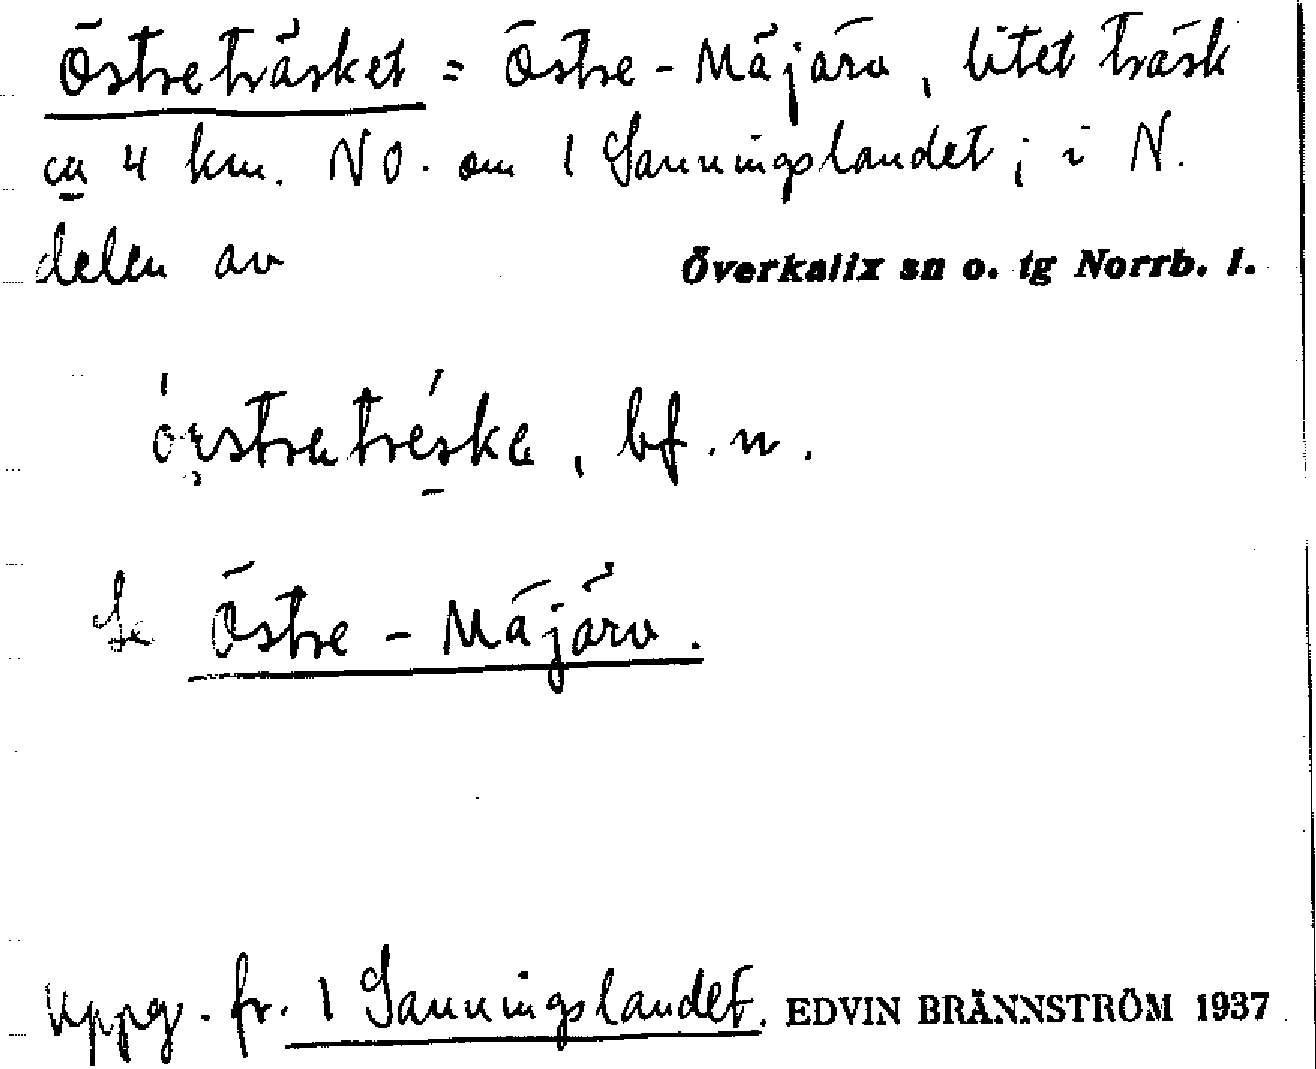 Östreträsket = Östre-Måjärv, litet träsk
ca 4 km. NO. om 1 Sanningslandet; i N.
delen av Överkalix sn o. tg Norrb. l.
bf. n.
Se Östre-Måjärv.
Uppg. fr. 1 Sanningslandet. EDVIN BRÄNNSTRÖM 1937